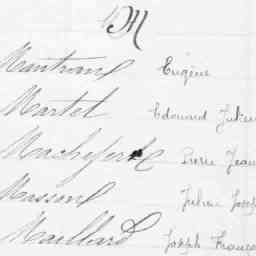 M
Mantrand Eugène
Martel Edouard Julien
Macheferte Pierre Jean
Masson Julien Joseph
Maillard Joseph Franço